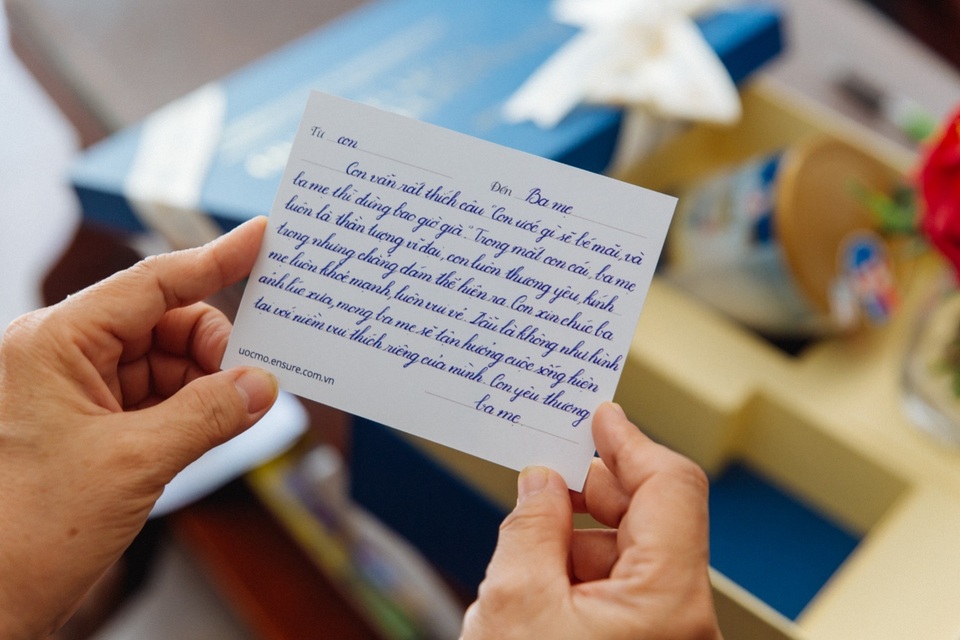 Từ con
Đến Ba mẹ
Con vẫn rất thích câu "Con ước gì sẽ bé mãi, và
ba mẹ thì đừng bao giờ già". Trong mắt con cái, ba mẹ
luôn là thần tượng vĩ đại, con luôn thương yêu kính
trọng nhưng chẳng dám thể hiện ra. Con xin chúc ba
mẹ luôn khoẻ mạnh, luôn vui vẻ. Dẫu là không như hình
ảnh lúc xưa, mong ba mẹ sẽ tận hưởng cuộc sống hiện
tại với niềm vui thích riêng của mình. Con yêu thương
ba mẹ
uocmo.ensure.com.vn